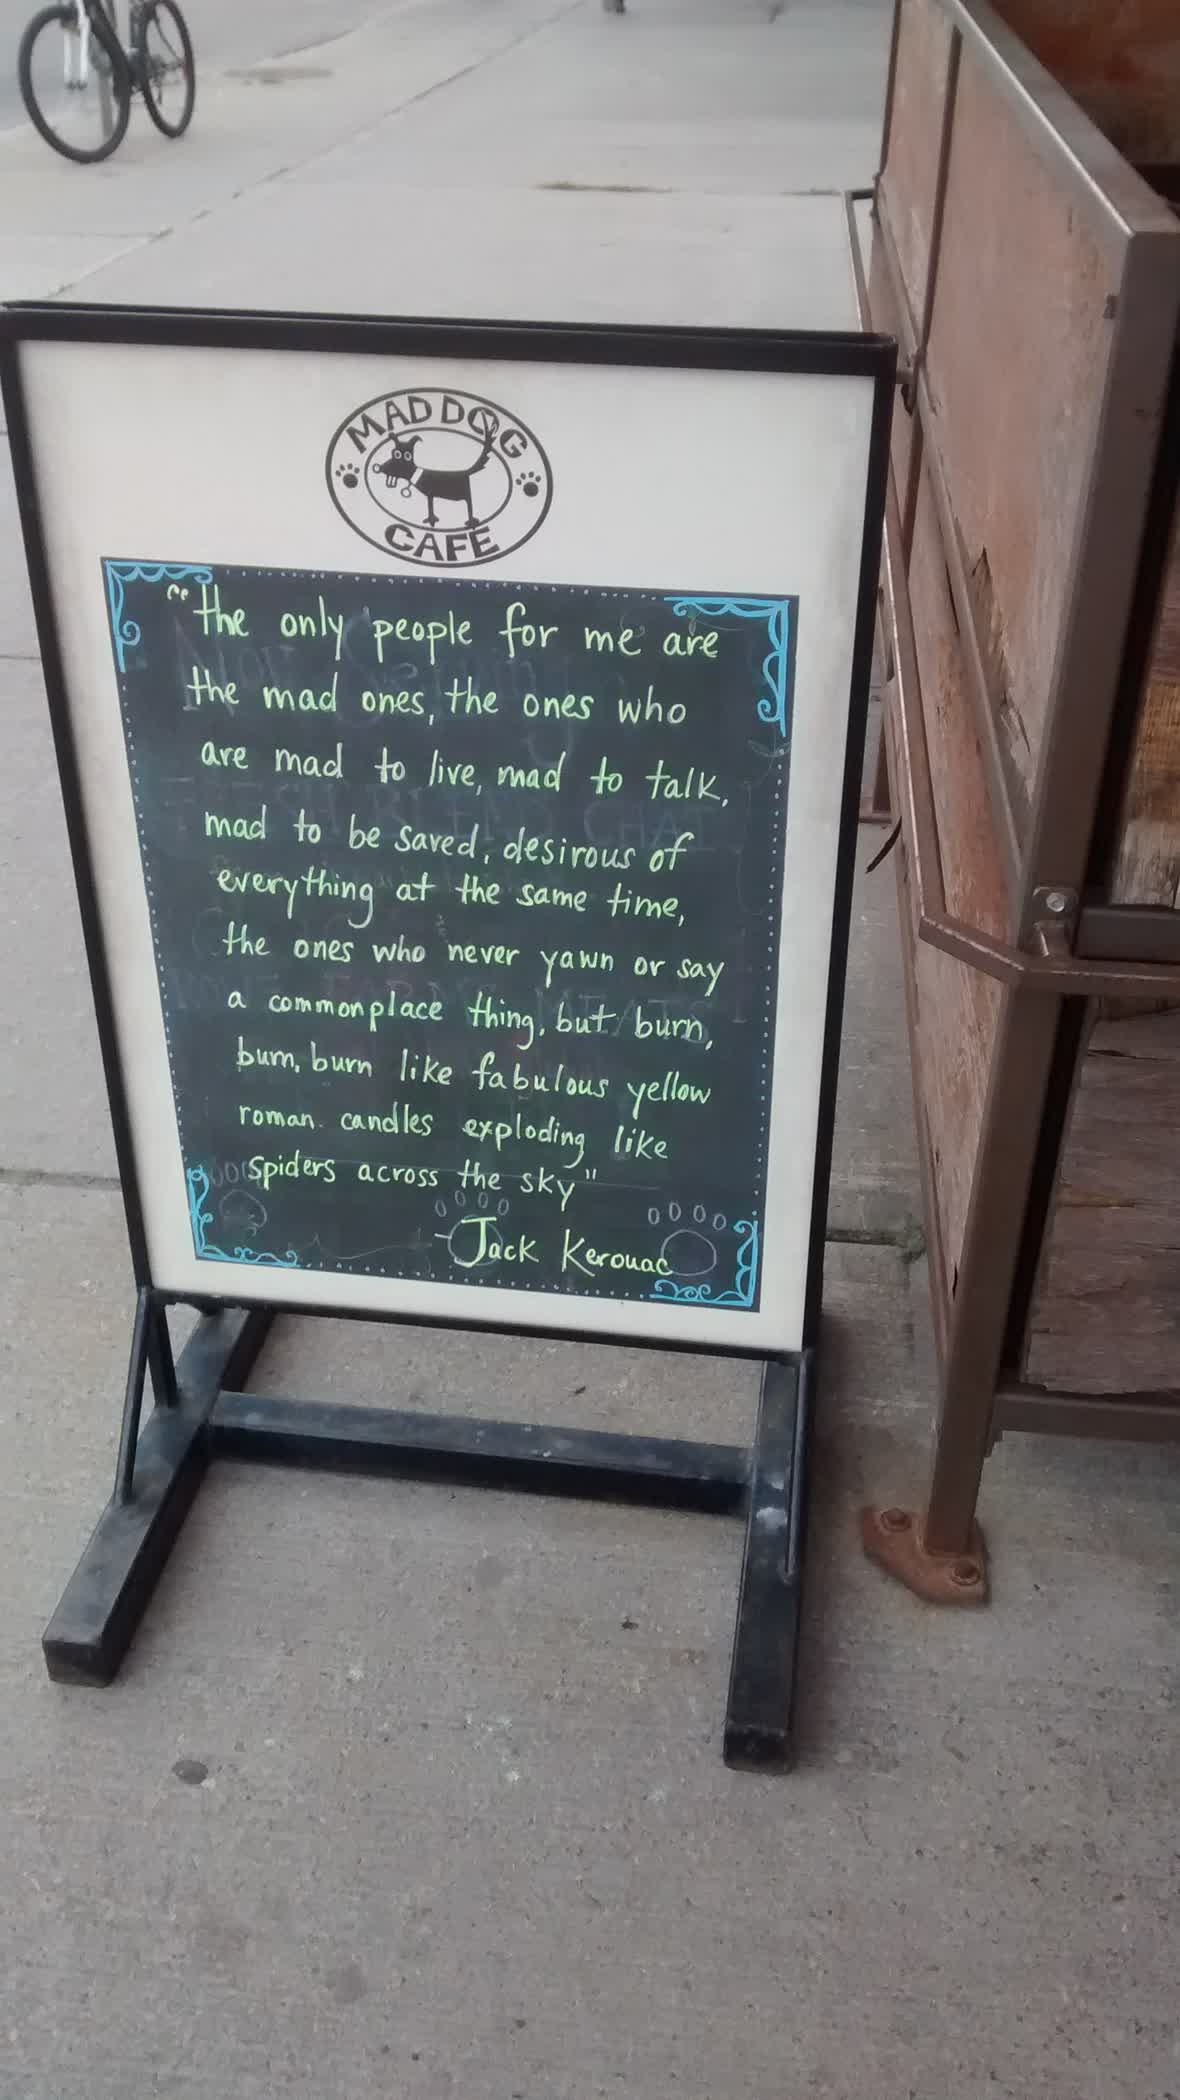 MAD DOG
CAFE
"the only people for me are
the mad ones, the ones who
are mad to live, mad to talk,
mad to be saved, desirous of
everything at the same time,
the ones who never yawn or say
a commonplace thing, but burn,
burn, burn like fabulous yellow
roman candles exploding like
spiders across the sky"
- Jack Kerouac